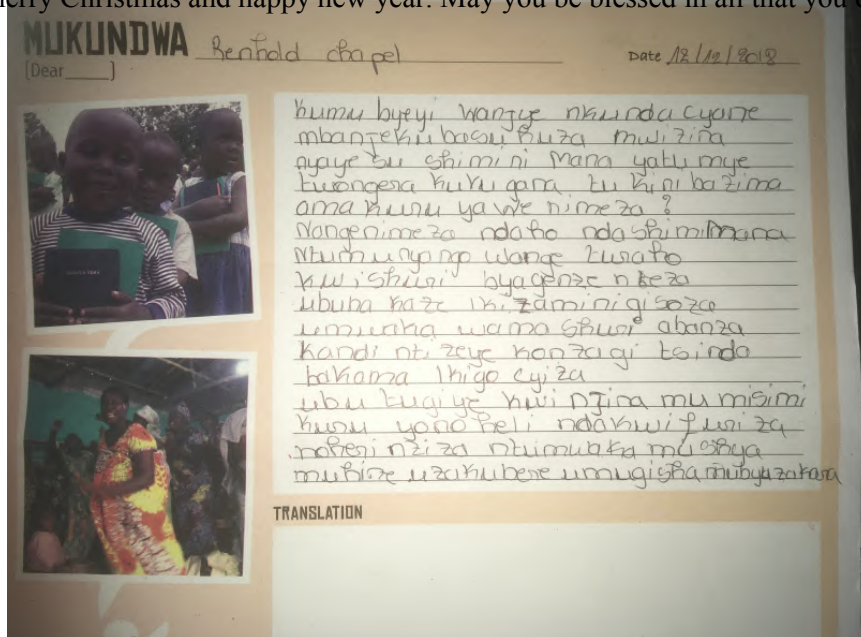 merry Christmas and happy new year. May you be blessed in all that you
MUKUNDWA Renhold chapel
(Dear____)
Date 12/12/2018
kumu byeyi wanjye nkunda cyane
mbanjeku basu huza mwizina
nyaye su shimi ni Mana yatumye
twongera kuvu gana tu kini bazima
ama kuru yawe nimeza?
Nangenimeza ndaho ndashimimana
Ntumunyango wange turaho
kwishuri byagenze neza
ubuha kaze ikizaminigisoza
umwaka wama shuri abanza
kandi nti zeye konzagi tsinda
bakama ikigo cyiza
ubu tugiye kwi njira mu misimi
kuru yono heli ndakwifuriza
noheri nziza ntumwaka mushya
muhire uzakubere umugisha mubyuzakora
TRANSLATION